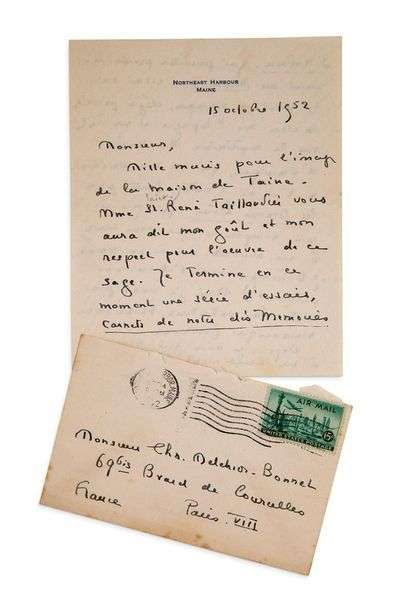 NORTHEAST HARBOUR
MAINE
15 octobre 1952
Monsieur,
Mille mercis pour l'image
de la Maison de Taine -
Mme St. René Taillandier vous
aura dit mon goût et mon
respect pour l'oeuvre de ce
sage. Je termine en ce
moment une série d'essais,
Carnets de notes des Memoires
AIR MAIL
15¢
UNITED STATES POSTAGE
Monsieur Chs. Melchior-Bonnet
69bis Bvard de Courcelles
Paris VIII
France